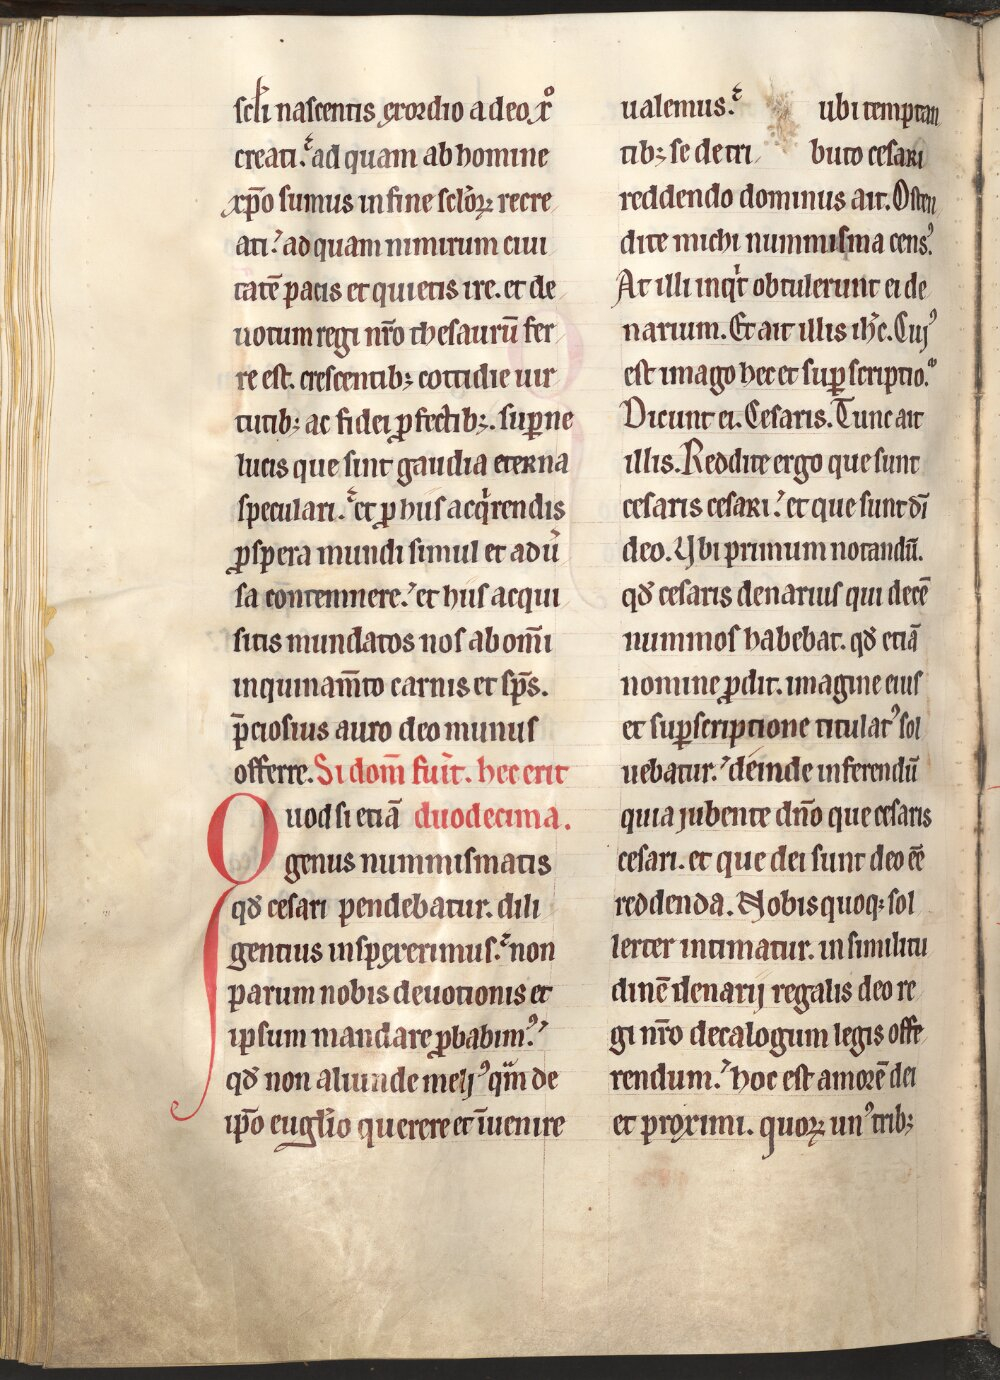 scłi nascentis exordio a deo xͦ
creati. ad quam ab homine
xp̄o sumus in fine sclōꝝ recre
ati. ad quam nimirum ciui
tatē pacis et quietis ire. et de
uotum regi nr̄o thesaurū fer
re est. crescentibꝫ cottidie uir
tutibꝫ ac fidei ꝑfectibꝫ. supne
lucis que sint gaudia eterna
speculari. et ꝑ hiis acq̇rendis
ꝓspera mundi simul et adū
sa contemnere. et hiis acqui
sitis mundatos nos ab om̄i
inquinam̄to carnis et sp̄s.
p̄ciosius auro deo munus
offerre. Si dom̄ fuīt. hec erit
Quod si etiā duodecima.
genus nummismatis
qđ cesari pendebatur. dili
gentius inspexerimus. non
parum nobis deuotionis et
ipsum mandare ꝓbabimꝰ.
qđ non aliunde meliꝰ qm̄ de
ip̄o eugłio querere et īuenire
ualemus. ubi temptan
tibꝫ se de tri buto cesari
reddendo dominus ait. Osten
dite michi nummisma censꝰ.
At illi inqͥt obtulerunt ei de
narium. Et ait illis ih̄c. Cujꝰ
est imago hec et suꝑscriptio.
Dicunt ei. Cesaris. Tunc ait
illis. Reddite ergo que sunt
cesaris cesari. et que sunt dī
deo. Vbi primum notandū.
qđ cesaris denarius qui decē
nummos habebat. qđ etiā
nomine ꝓdit. imagine eius
et suꝑscriptione titulatꝰ sol
uebatur. deinde inferendū
quia jubente dn̄o que cesaris
cesari. et que dei sunt deo eē
reddenda. Nobis quoqꝫ sol
lerter intimatur. in similitu
dinē denarij regalis deo re
gi nr̄o decalogum legis offe
rendum. hoc est amorē dei
et proximi. quoꝝ unꝰ tribꝫ